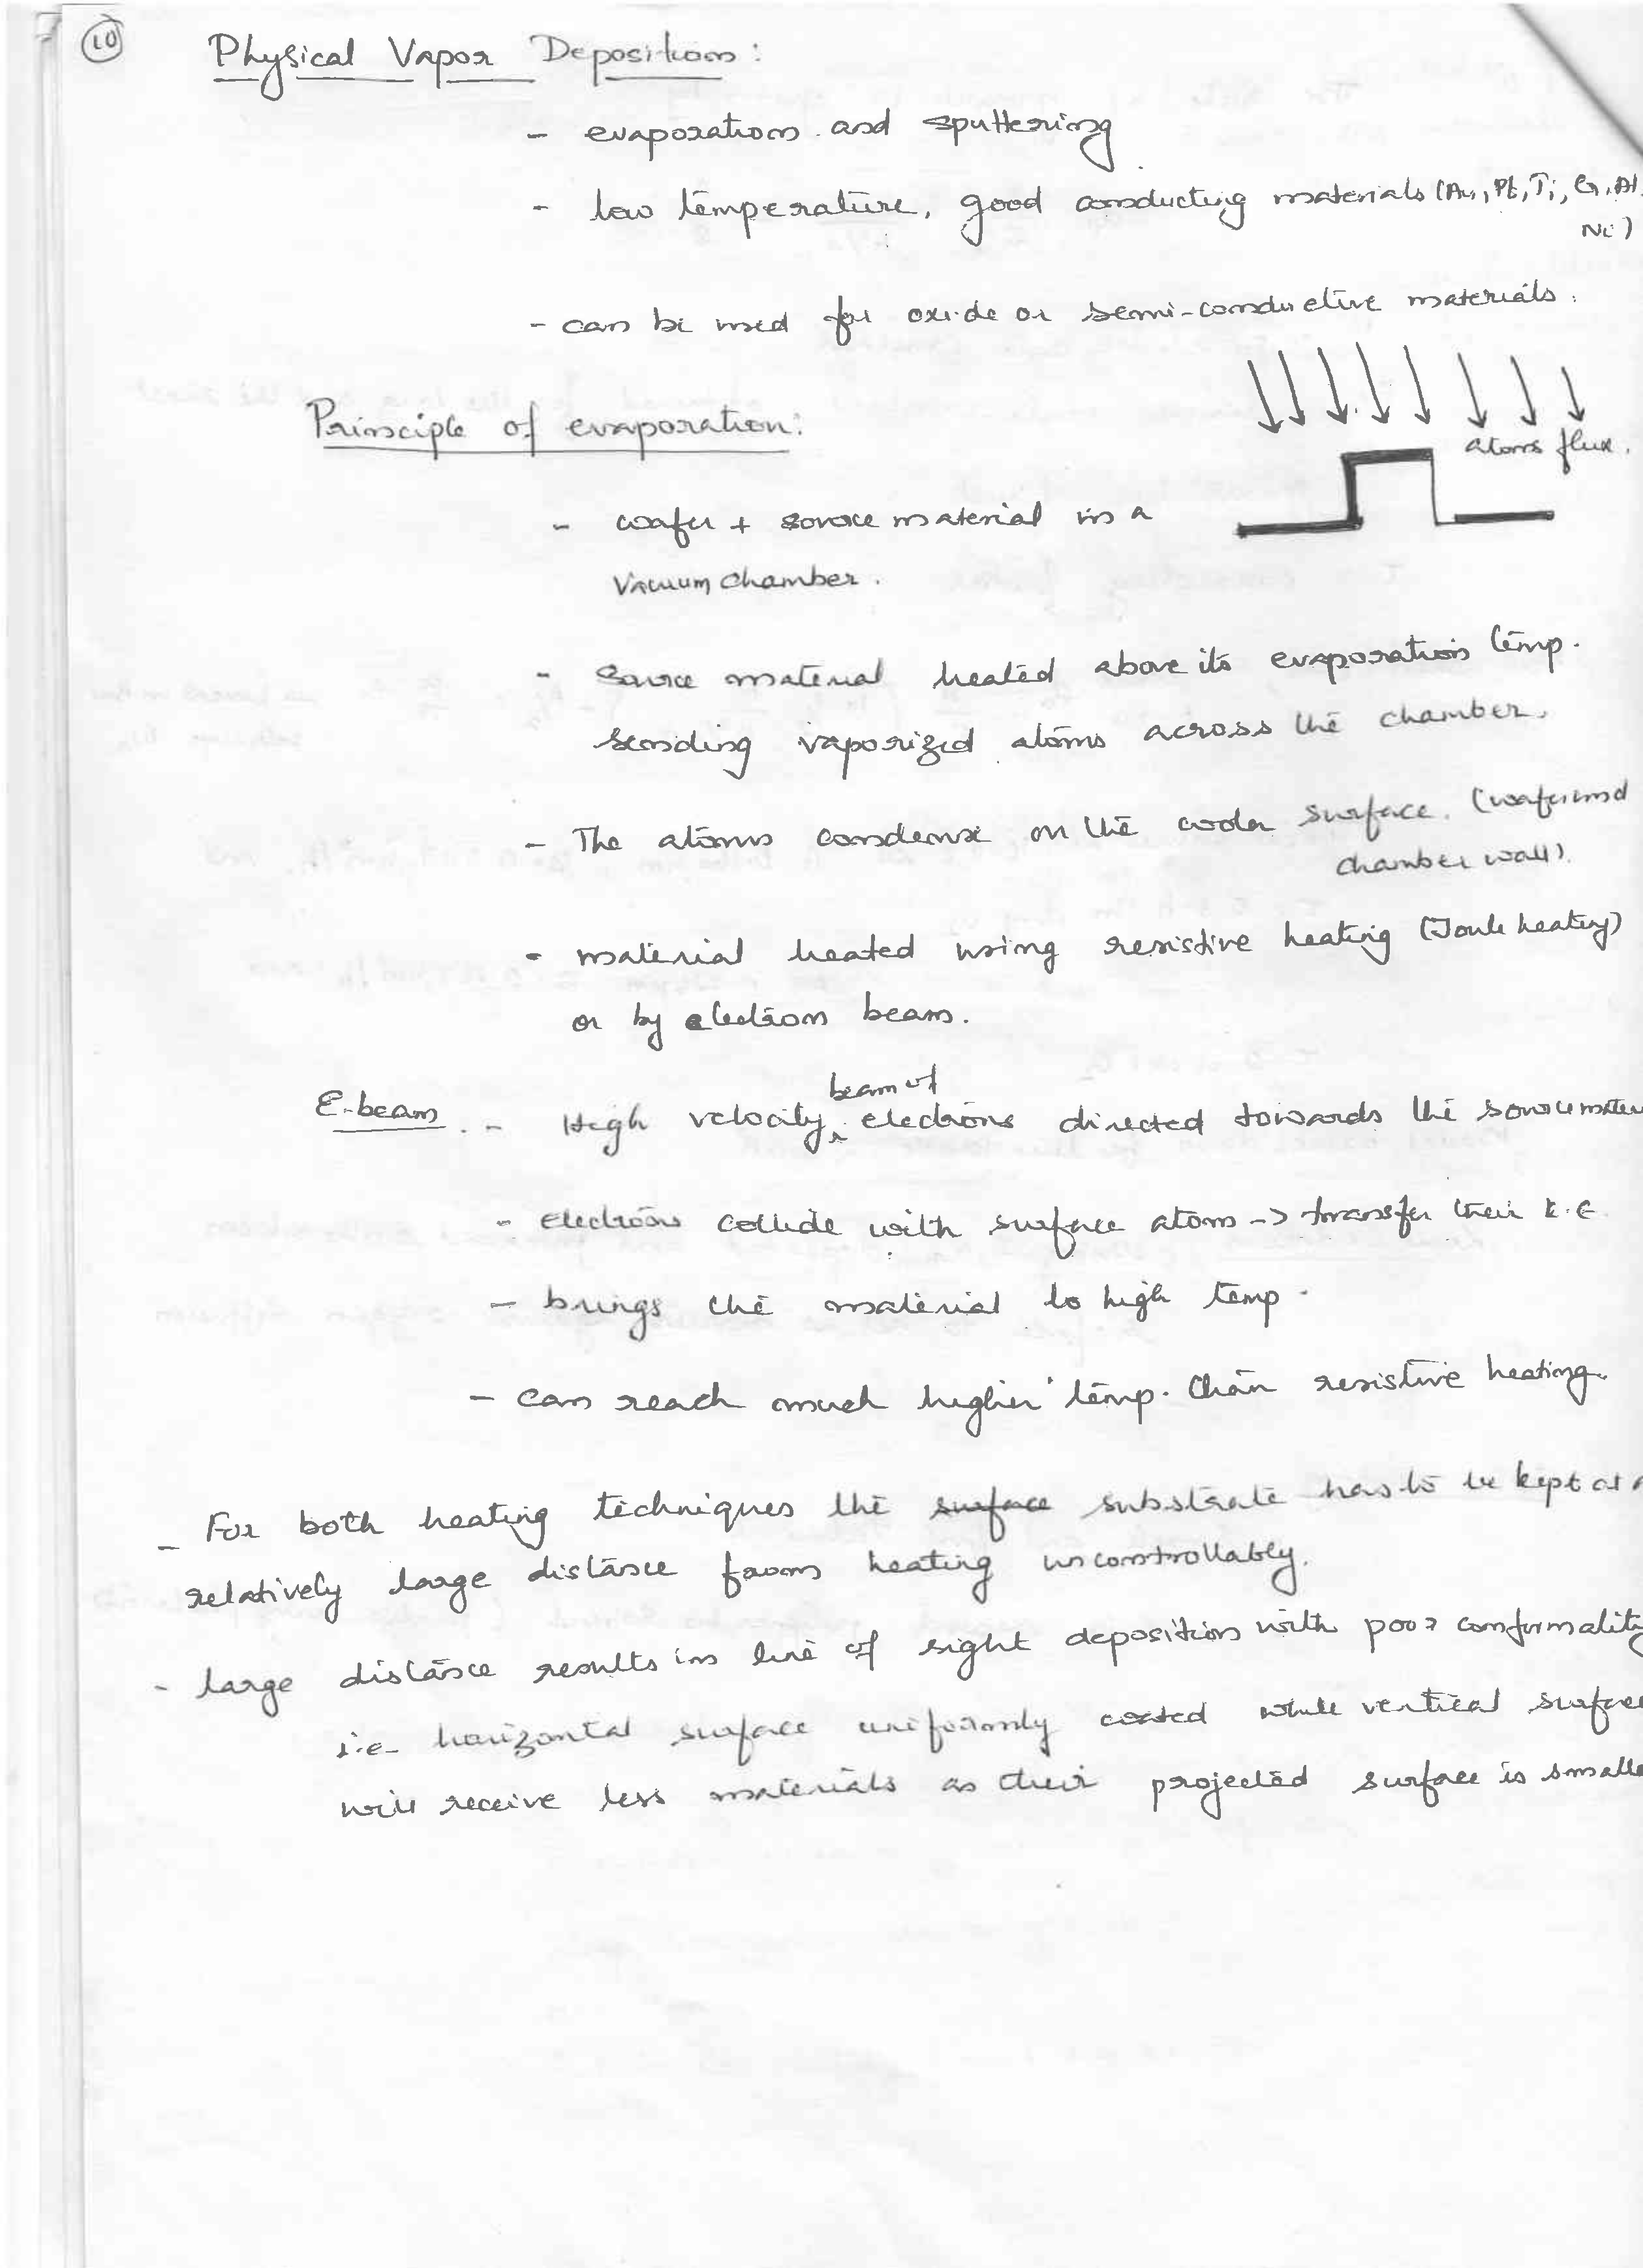 10
Physical Vapor Deposition:
- evaporation and sputtering
- low temperature, good conducting materials (Au, Pt, Ti, Cr, Al,
Ni)
- can be used for oxide or semi-conductive materials.
atoms flux.
Principle of evaporation:
- wafer + source material in a
vacuum chamber.
- Source material heated above its evaporation temp.
sending vaporized atoms across the chamber.
- The atoms condense on the cooler surface. (wafer and
chamber wall).
- material heated using resistive heating (Joule heating)
or by electron beam.
beam of
E-beam. - High velocity electrons directed towards the source mater
- electrons collide with surface atom -> transfer their K.E.
- brings the material to high temp.
- can reach much higher temp. than resistive heating.
- For both heating techniques the surface substrate has to be kept at a
relatively large distance from heating uncontrollably.
- large distance results in line of sight deposition with poor conformality
i.e. horizontal surface uniformly coated while vertical surface
will receive less materials as their projected surface is smalle